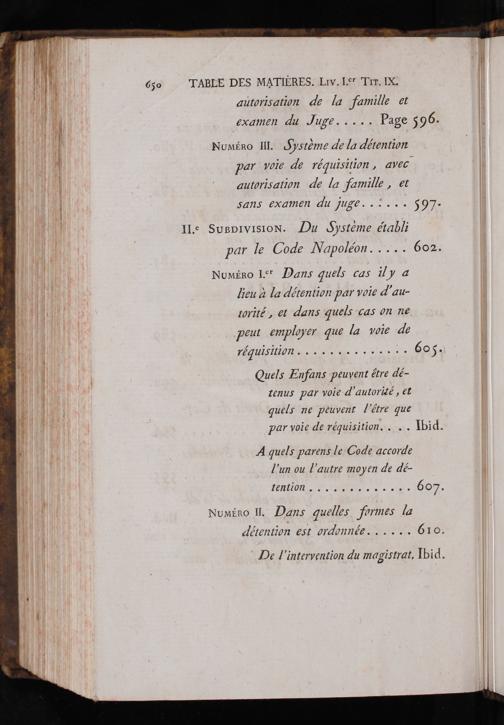 650 TABLE DES MATIÈRES. LIV. I.er TIT. IX.
autorisation de la famille et
examen du Juge..... Page 596.
NUMÉRO III. Système de la détention
par voie de réquisition, avec
autorisation de la famille, et
sans examen du juge...... 597.
II.e SUBDIVISION. Du Système établi
par le Code Napoléon..... 602.
NUMÉRO I.er Dans quels cas il y a
lieu à la détention par voie d'au-
torité, et dans quels cas on ne
peut employer que la voie de
réquisition.............. 605.
Quels Enfans peuvent être dé-
tenus par voie d'autorité, et
quels ne peuvent l'être que
par voie de réquisition.... Ibid.
A quels parens le Code accorde
l'un ou l'autre moyen de dé-
tention............. 607.
NUMÉRO II. Dans quelles formes la
détention est ordonnée...... 610.
De l'intervention du magistrat. Ibid.